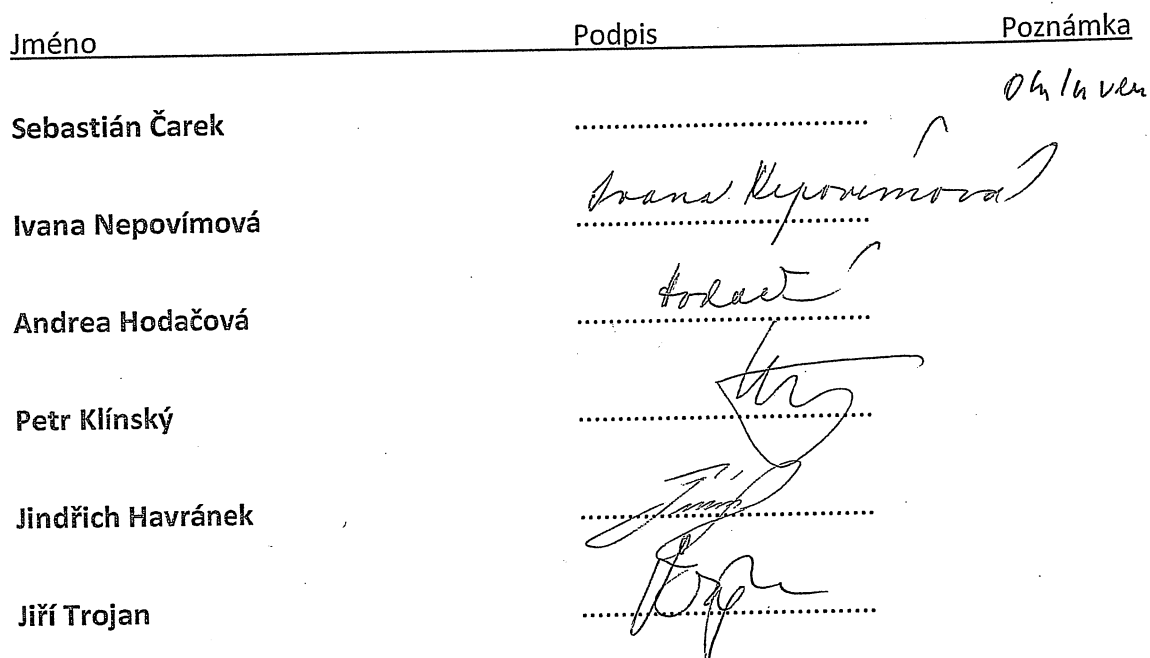 Jméno Podpis Poznámka
Sebastián Čarek ...............................
Ivana Nepovímová Ivana Nepovímová
Andrea Hodačová Hodačová
Petr Klínský
Jindřich Havránek
Jiří Trojan